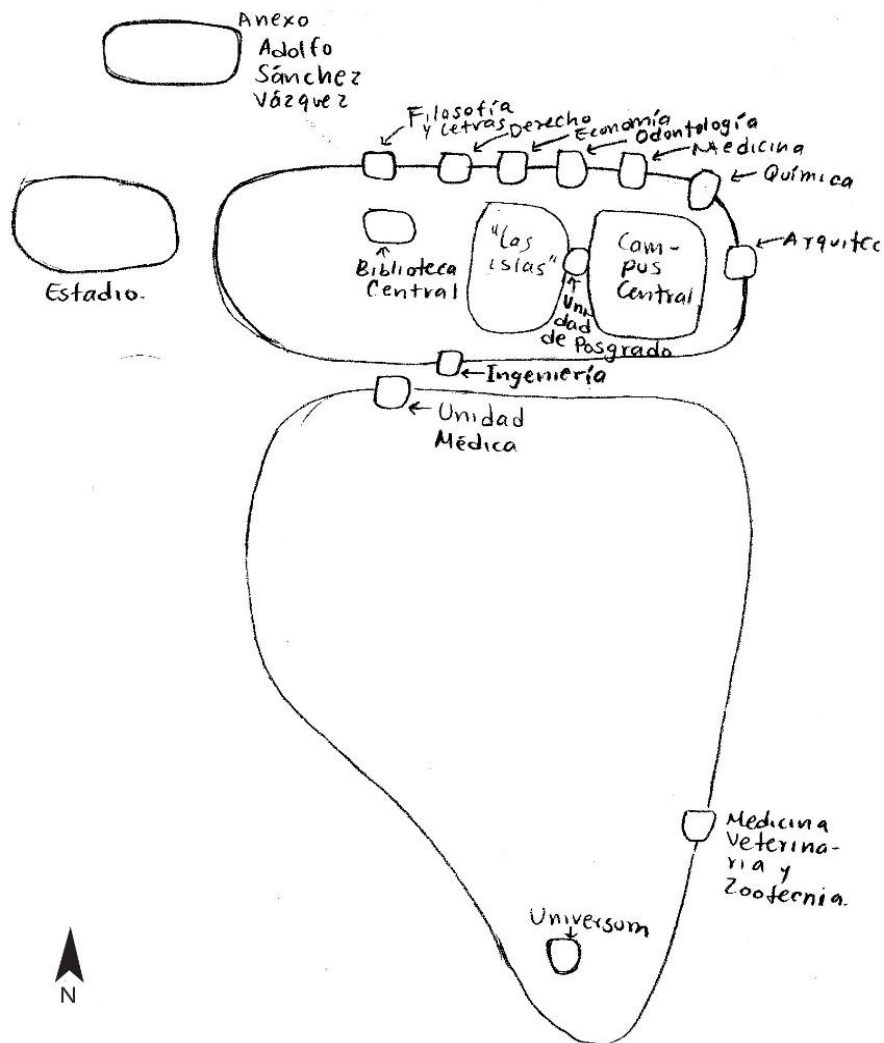 Anexo
Adolfo
Sánchez
Vázquez
Filosofía
y Letras
Derecho
Economía
Odontología
Medicina
Química
Arquitec
Estadio.
Biblioteca
Central
"Las
islas"
Cam-
pus
Central
Uni-
dad
de Posgrado
Ingeniería
Unidad
Médica
Medicina
Veterina-
ria y
Zootecnia.
Universum
N